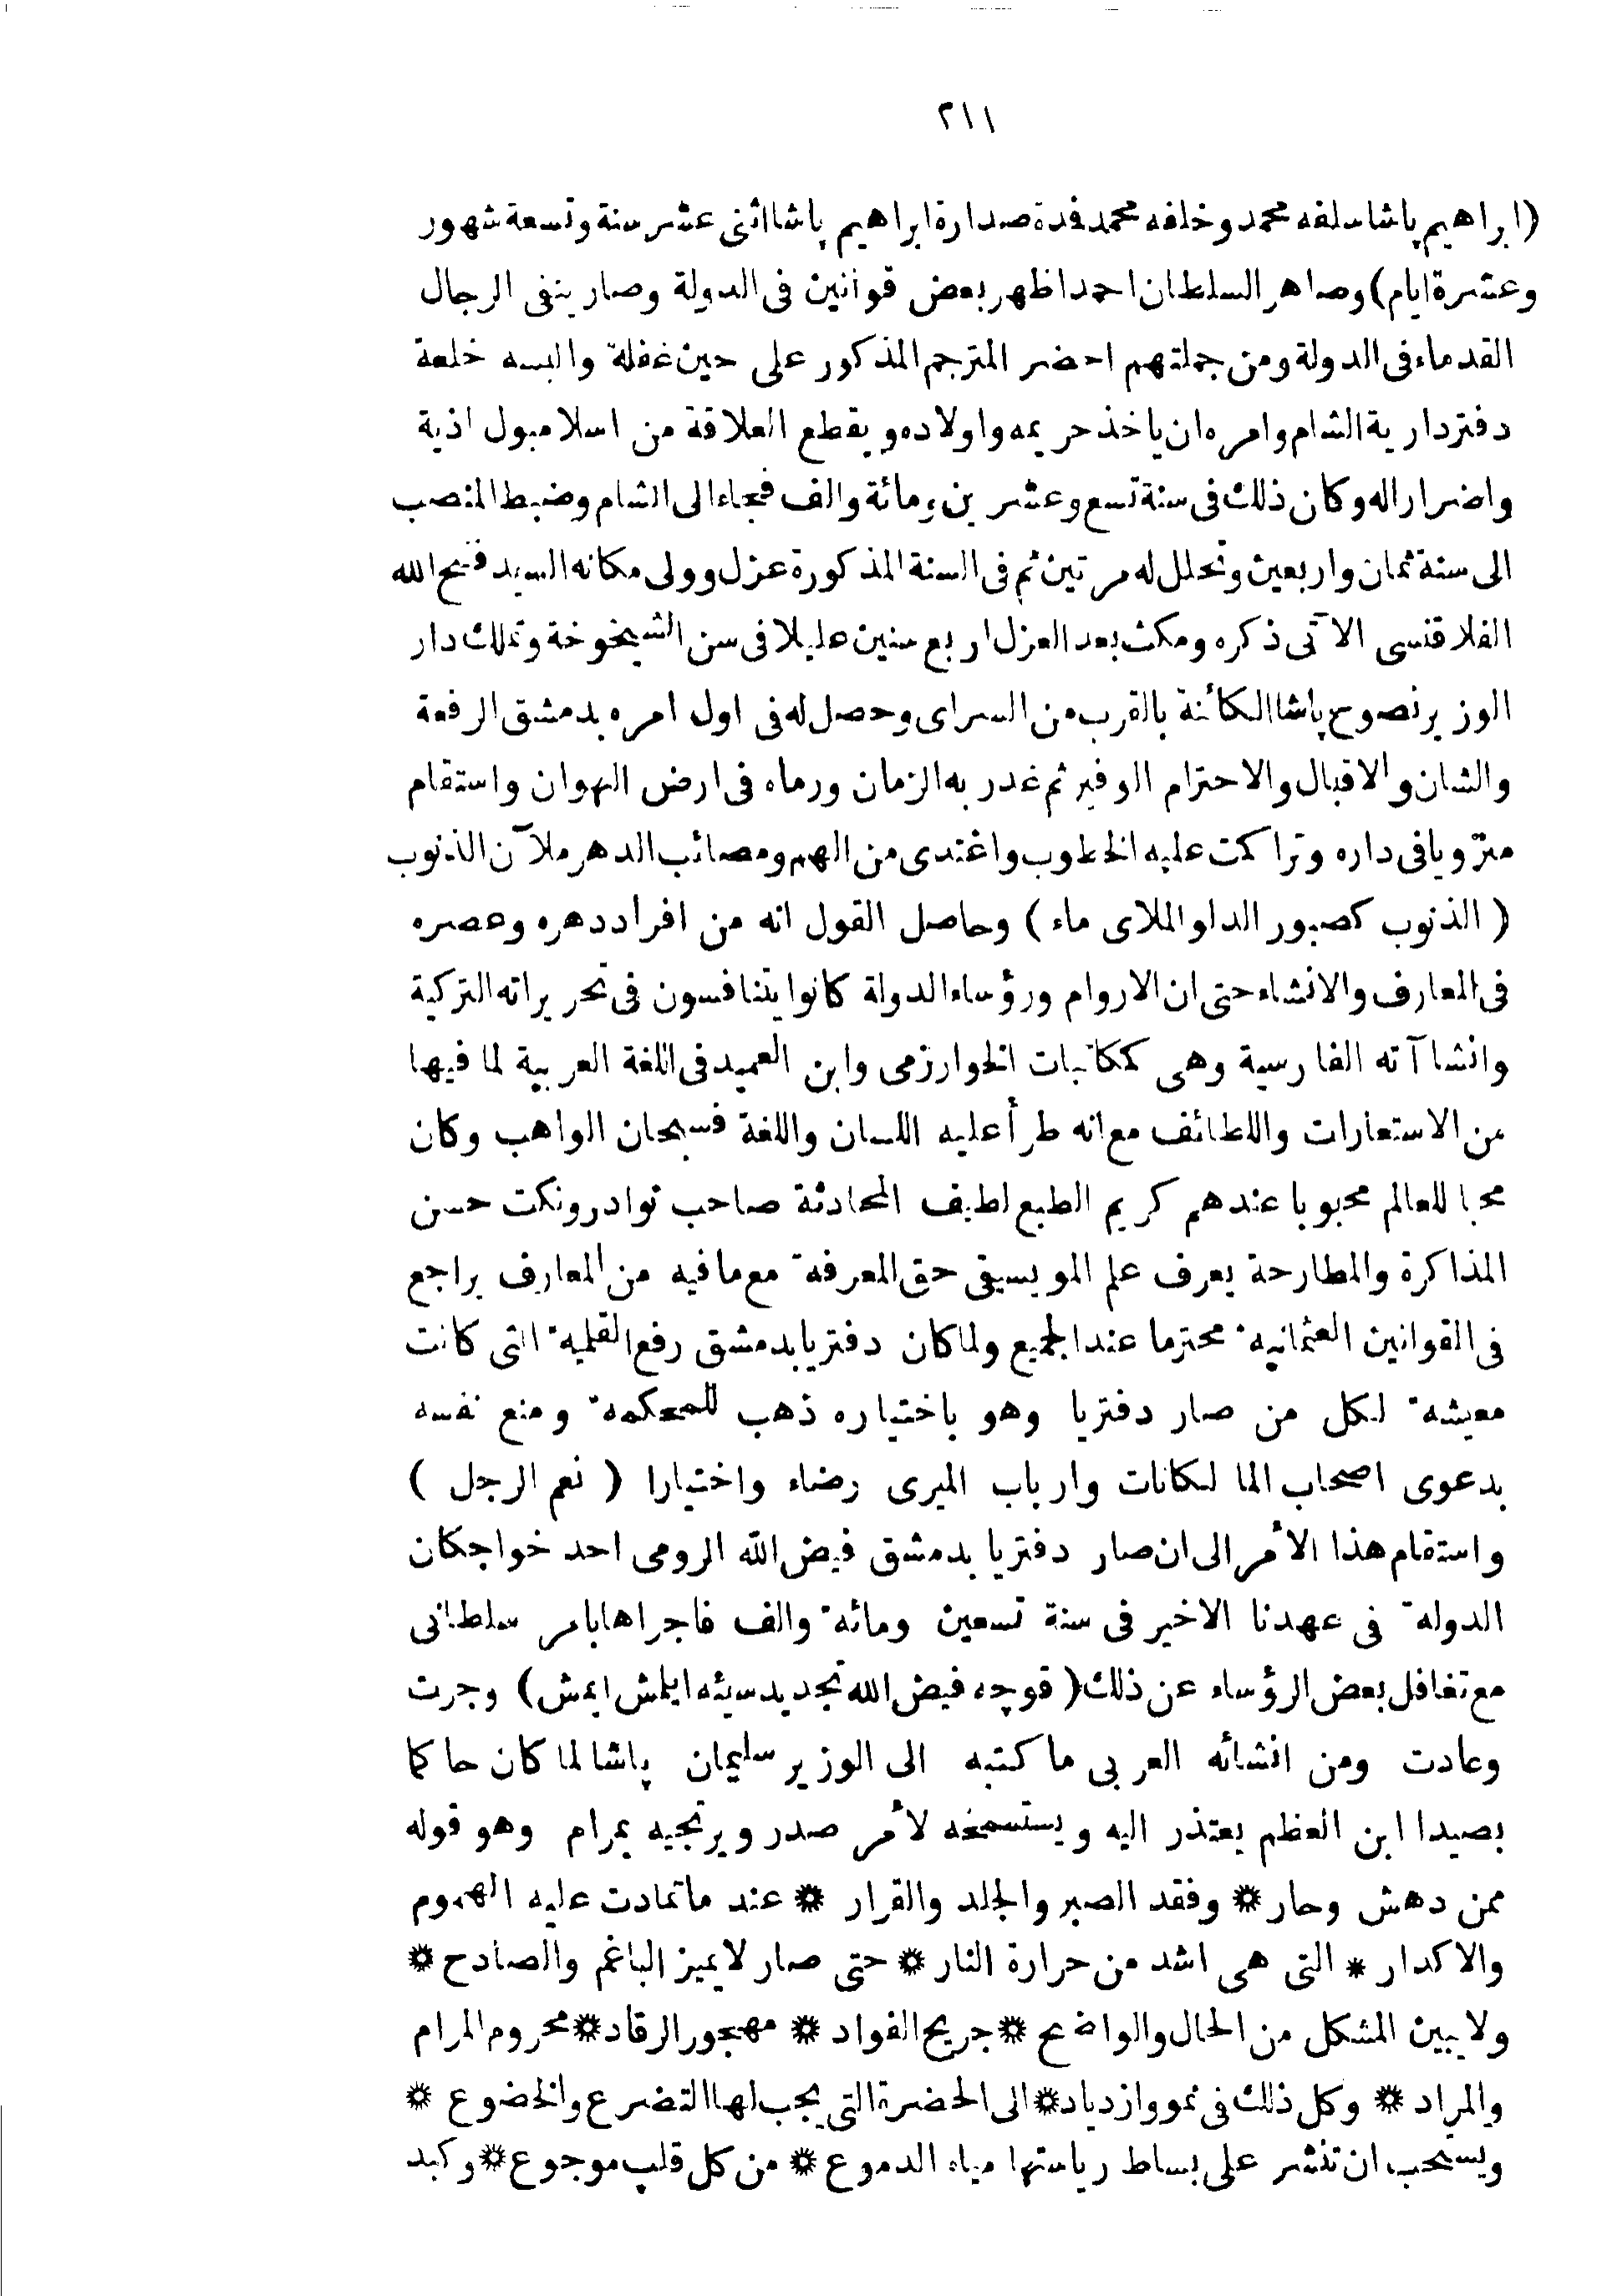 ٢١١
(ابراهيم پاشا سلفه محمد وخلفه محمد فدة صدارة ابراهيم پاشا اثنى عشر سنة وتسعة شهور
وعشرة ايام) وصاهر السلطان احمد اظهر بعض قوانين فى الدولة وصار ينفى الرجال
القدماء فى الدولة ومن جملتهم احضر المترجم المذكور على حين غفلة والبسه خلعة
دفتردارية الشام وامره ان ياخذ حريمه واولاده ويقطع العلاقة من اسلامبول اذية
واضرارا له وكان ذلك فى سنة تسع وعشرين ومائة والف فجاء الى الشام وضبط المنصب
الى سنة ثمان واربعين وتخلل له مرتين ثم فى السنة المذكورة عزل وولى مكانه السيد فتح الله
الفلاقنسى الآتى ذكره ومكث بعد العزل اربع سنين عليلا فى سن الشيخوخة وتملك دار
الوزير نصوح پاشا الكائنة بالقرب من السراى وحصل له فى اول امره بدمشق الرفعة
والشان والاقبال والاحترام الوفير ثم غدر به الزمان ورماه فى ارض الهوان واستقام
منزويا فى داره وتراكمت عليه الخطوب واغتدى من الهم ومصائب الدهر ملآن الذنوب
(الذنوب كصبور الدلو الملاى ماء) وحاصل القول انه من افراد دهره وعصره
فى المعارف والانشاء حتى ان الاروام ورؤساء الدولة كانوا يتنافسون فى تحريراته التركية
وانشاآته الفارسية وهى كمكاتبات الخوارزمى وابن العميد فى اللغة العربية لما فيها
من الاستعارات واللطائف مع انه طرأ عليه اللسان واللغة فسبحان الواهب وكان
محبا للعالم محبوبا عندهم كريم الطبع لطيف المحادثة صاحب نوادر ونكت حسن
المذاكرة والمطارحة يعرف علم المويسيقى حق المعرفة مع ما فيه من المعارف يراجع
فى القوانين العثمانية محترما عند الجميع ولما كان دفتريا بدمشق رفع القلمية التى كانت
معيشة لكل من صار دفتريا وهو باختياره ذهب للمحكمة ومنع نفسه
بدعوى اصحاب المالكانات وارباب الميرى رضاء واختيارا (نعم الرجل)
واستقام هذا الأمر الى ان صار دفتريا بدمشق فيض الله الرومى احد خواجكان
الدولة فى عهدنا الاخير فى سنة تسعين ومائة والف فاجراها بامر سلطانى
مع تغافل بعض الرؤساء عن ذلك (قوچه فيض الله تجديد سيئه ايلمش ايمش) وجرت
وعادت ومن انشائه العربى ما كتبه الى الوزير سليمان پاشا لما كان حاكما
بصيدا ابن العظم يعتذر اليه ويستسمحه لأمر صدر ويرتجيه بمرام وهو قوله
ممن دهش وحار * وفقد الصبر والجلد والقرار * عند ما تمادت عليه الهموم
والاكدار * التى هى اشد من حرارة النار * حتى صار لا يميز الباغم والصادح *
ولا يبين المشكل من الحال والواضح * جريح الفواد * مهجور الرقاد * محروم المرام
والمراد * وكل ذلك فى نمو وازدياد * الى الحضرة التى يجب لها التضرع والخضوع *
ويستحب ان تنشر على بساط رياستها مياه الدموع * من كل قلب موجوع * وكبد